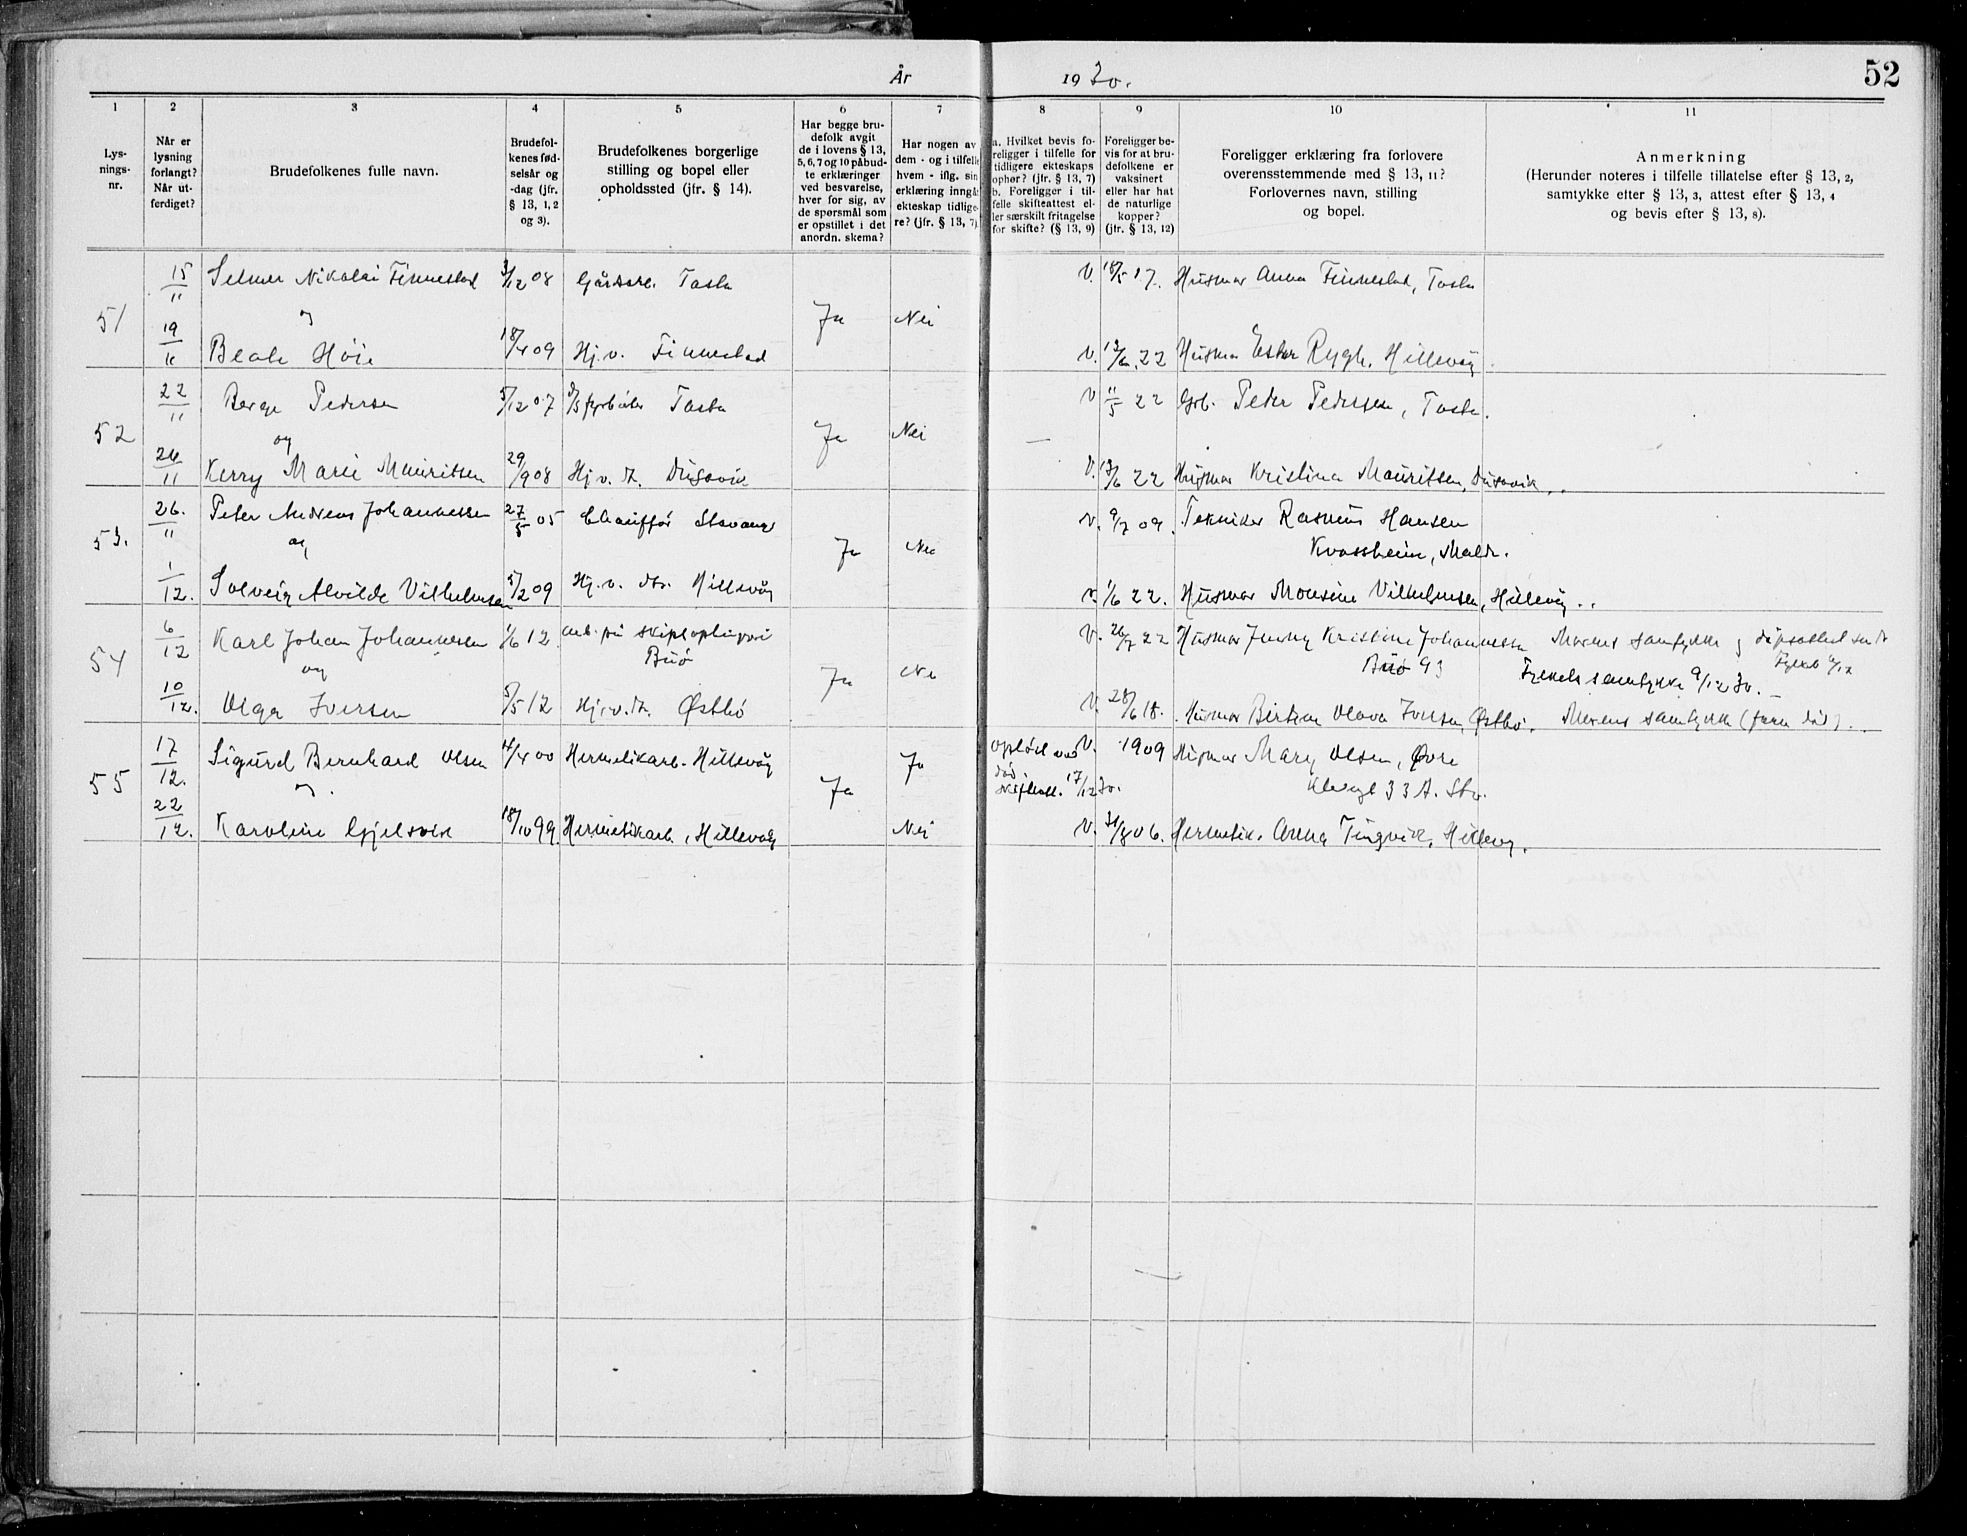 År 1930. 52
1 2 3 4 5 6 7 8 9 10 11
Lys-
nings-
nr.
Når er
lysning
forlangt?
Når ut-
ferdiget?
Brudefolkenes fulle navn.
Brudefol-
kenes fød-
selsår og
-dag (jfr.
§ 13, 1, 2
og 3).
Brudefolkenes borgerlige
stilling og bopel eller
opholdssted (jfr. § 14).
Har begge bru-
defolk avgit
de i lovens § 13,
5, 6, 7 og 10 påbud-
te erklæringer
ved besvarelse,
hver for sig, av
de spørsmål som
er opstillet i det
anordn. skema?
Har nogen av
dem - og i tilfelle
hvem - iflg. sin
erklæring inngåt
ekteskap tidlige-
re? (jfr. § 13, 7)
a. Hvilket bevis fo-
religger i tilfelle for
tidligere ekteskaps
ophør? (jfr. § 13, 7)
b. Foreligger i til-
felle skifteattest el-
ler særskilt fritagelse
for skifte? (§ 13, 9)
Foreligger be-
vis for at bru-
defolkene er
vaksinert
eller har hat
de naturlige
kopper?
(jfr. § 13, 12)
Foreligger erklæring fra forlovere
overensstemmende med § 13, 11?
Forlovernes navn, stilling
og bopel.
Anmerkning
(Herunder noteres i tilfelle tillatelse efter § 13, 2,
samtykke efter § 13, 3, attest efter § 13, 4
og bevis efter § 13, 8).
15/11 Selmer Nikolai Finnestad 3/12 08 Gårdarb. Tasta V. 18/5 17. Husmor Anna Finnestad, Tasta
51 og Ja Nei
19/11 Beate Höie 18/4 09 Hj.v. Finnestad V. 12/6 22 Husmor Ester Rygh, Hillevåg
22/11 Berge Pedersen 5/12 07 Tasta V 11/5 22 Grb. Peter Pedersen, Tasta.
52 og Ja Nei —
26/11 Kerry Marie Mauritsen 29/9 08 Hj.v. d. Dusavik V. 13/6 22 Husmor Kristina Mauritsen, Dusavik.
26./11 Peter Andreas Johannessen 27/5 05 Chauffør Stavanger V. 9/7 09. Tekniker Rasmus Hansen
53. og Ja Nei Kvassheim, Madla.
1/12. Solveig Alvilde Vilhelmsen 5/2 09 Hj.v. dtr. Hillevåg V. 1/6 22. Husmor Monsine Vilhelmsen, Hillevåg.
6/12 Karl Johan Johannessen 1/6 12 arb. på skipsoplagsri V. 26/7 22 Husmor Jenny Kristine Johannessen Morens samtykke og dåpsattest sendt
54 og Buø Ja Nei Buø 93 Fylket 6/12
Fylkets samtykke 9/12 30. —
10/12. Olga Iversen 5/5 12 Hj.v.d. Østbø V. 28/6 18. Husmor Birthe Olava Iversen, Østbø. Morens samtykke (faren död).
17/12. Sigurd Bernhard Olsen 4/4 00 Hermetikarb. Hillevåg Ja opløst ved V. 1909 Husmor Mary Olsen, Øvre
55 og. Ja død
skifteatt. 17/12 30. Klevgt 33 A. Stv.
22/12. Karoline Gjelsvik 18/10 99. Hermetikarb, Hillevåg Nei V. 31/8 06. Hermetik. Anna Tingvik, Hillevåg.